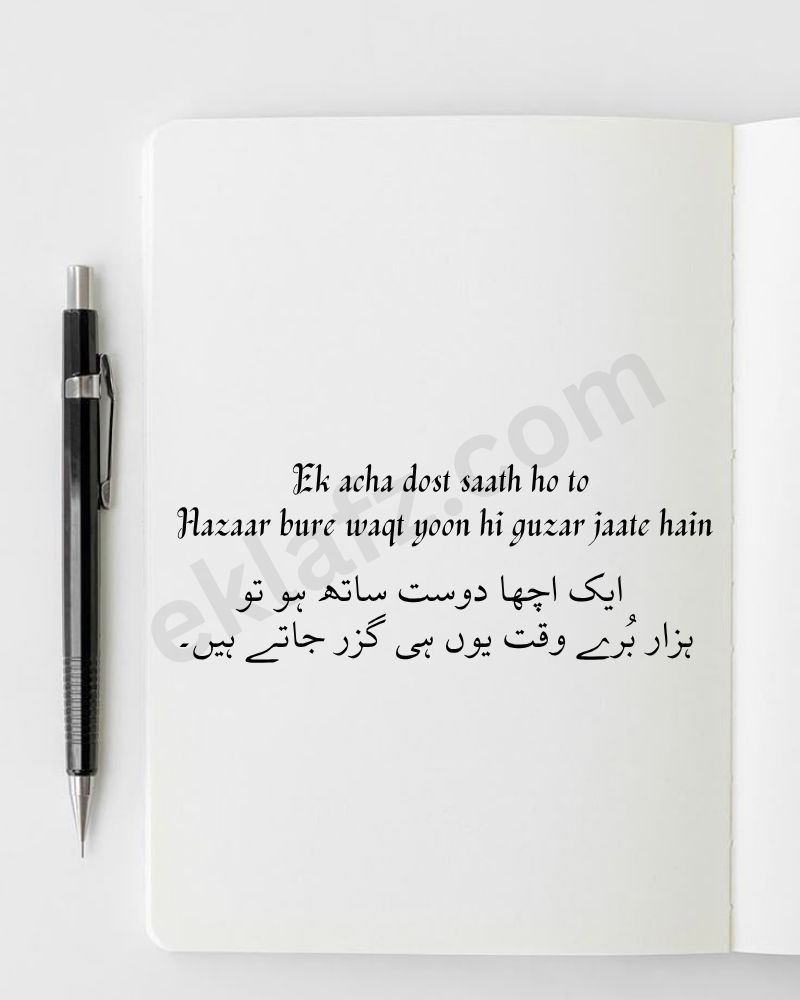 Ek acha dost saath ho to
Hazaar bure waqt yoon hi guzar jaate hain
ایک اچھا دوست ساتھ ہو تو
ہزار بُرے وقت یوں ہی گزر جاتے ہیں۔
eklafz.com